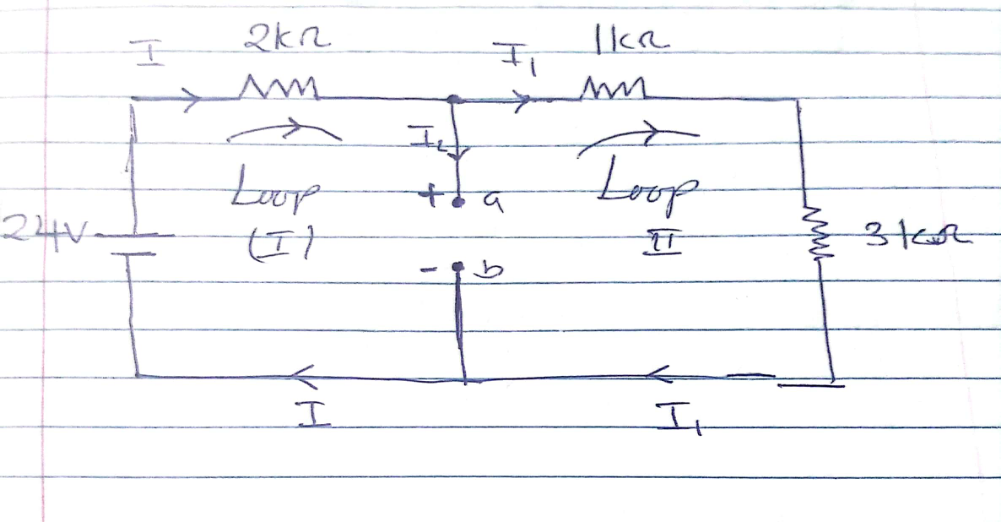 I 2kΩ I₁ 1kΩ
I₂
+ a
Loop (I)
Loop II
24V
3kΩ
- b
I I₁